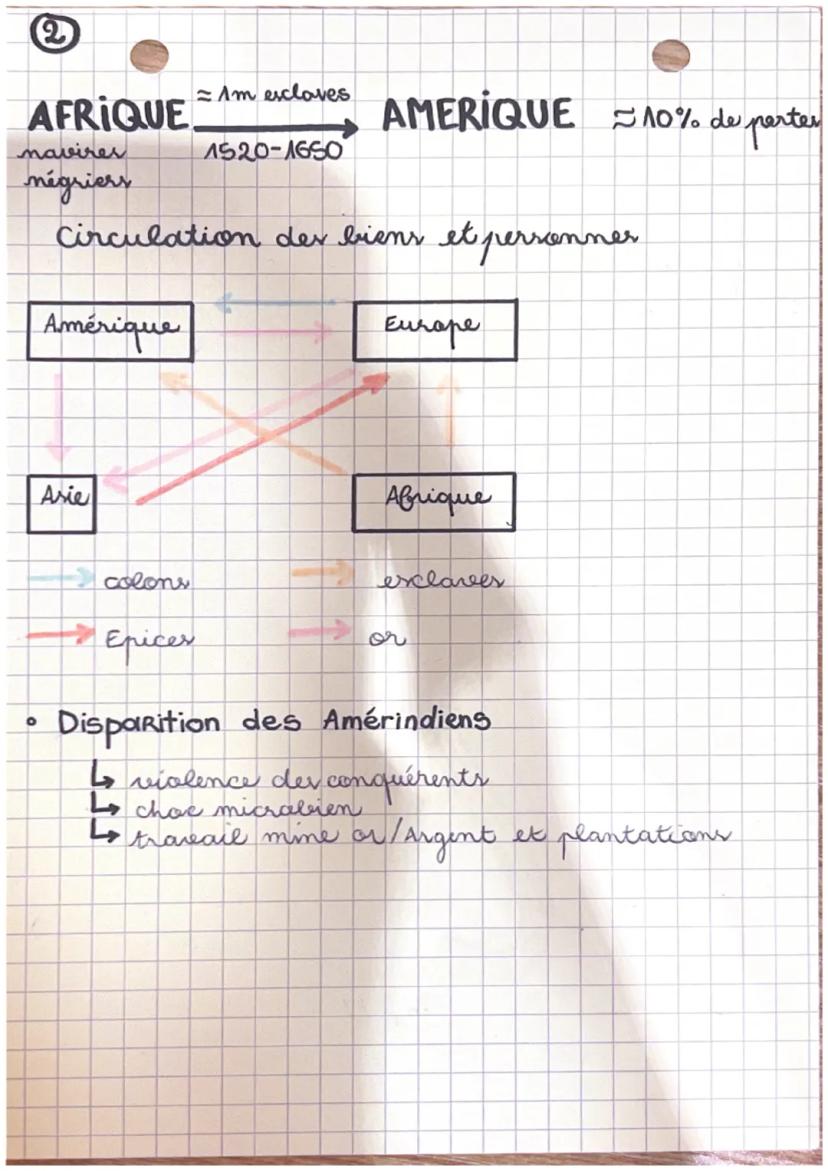 2
≈ 1m esclaves
AFRIQUE → AMERIQUE ≈ 10% de pertes
navires 1520-1650
négriers
Circulation des biens et personnes
Amérique Europe
Asie Afrique
→ colons → esclaves
→ Epices → or
• Disparition des Amérindiens
↳ violence des conquérents
↳ choc microbien
↳ travail mine or/Argent et plantations